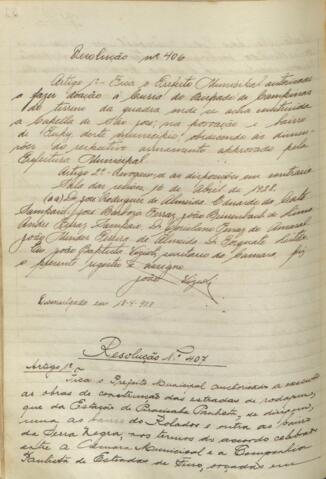 Resolução nº 406
Artigo 1º Fica o Prefeito Municipal autorisado
a fazer doação á Curia do Bispado de Campinas
do terreno da quadra onde se acha construida
a Capella de São José, na povoação e bairro
de deste municipio, obedecendo as dimen-
sões do respectivo arruamento approvado pela
Prefeitura Municipal.
Artigo 2º Revogam-se as disposições em contrario
Sala das sessões, de Abril de 1928.
(aa) Dr José Rodrigues de Almeida, Eduardo da Costa
Sampaio, José Barbosa Ferraz, João de Lima,
André Ferraz Sampaio, Dr Coriolano Ferraz do Amaral
João Mendes Pereira de Almeida, Dr Torquato Leitão
Eu João Baptista secretario da Camara, fiz
o presente registro e assigno
João
Promulgada em 18-4-928
Resolução N.º 407
Artigo 1º
Fica o Prefeito Municipal autorisado a executar
as obras de construcção das estradas de rodagem,
que da Estação de Paulista, se dirigem,
uma ao bairro do e outra ao bairro
da Serra Negra, nos termos do accordo celebrado
entre a Camara Municipal e a Companhia
Paulista de Estradas de Ferro, orçadas em